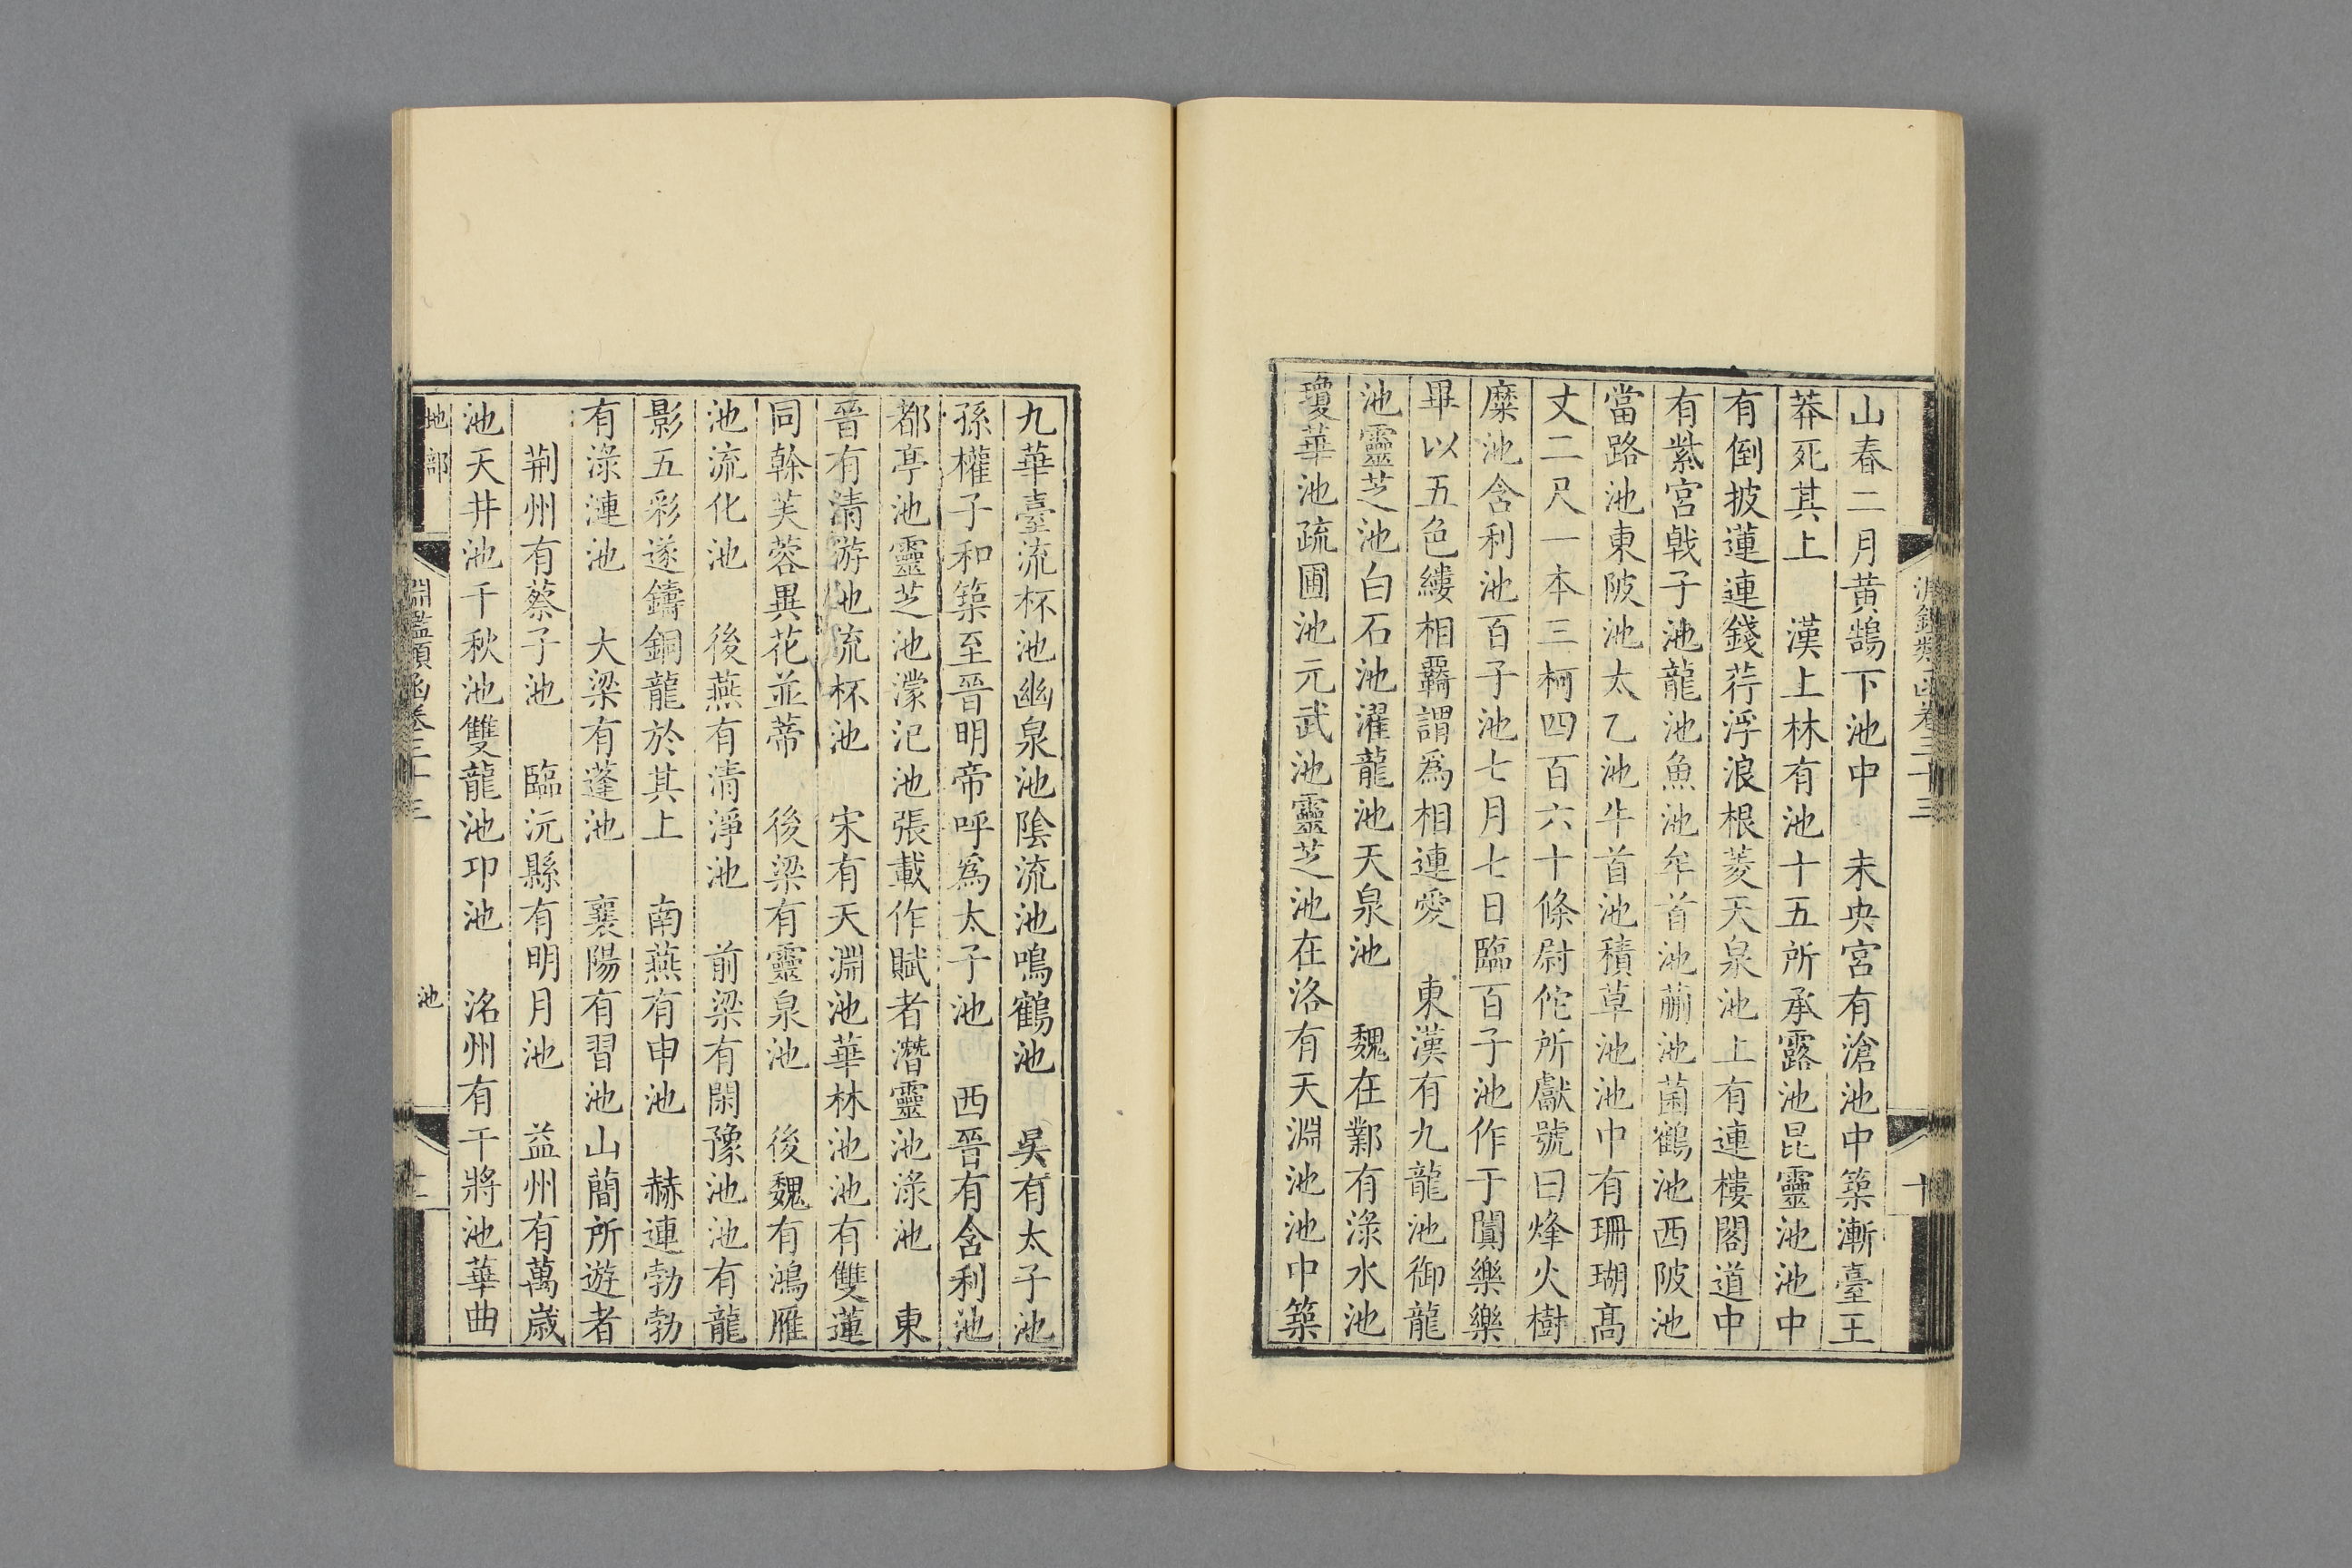 淵鑑類函卷三十三
十
山春二月黃鵠下池中　未央宮有滄池中築漸臺王
莽死其上　漢上林有池十五所承露池昆靈池池中
有倒披蓮連錢荇浮浪根菱天泉池上有連樓閣道中
有紫宮戟子池龍池魚池牟首池蒯池菌鶴池西陂池
當路池東陂池太乙池牛首池積草池池中有珊瑚高
丈二尺一本三柯四百六十條尉佗所獻號曰烽火樹
糜池含利池百子池七月七日臨百子池作于闐樂樂
畢以五色縷相羈謂爲相連愛　東漢有九龍池御龍
池靈芝池白石池濯龍池天泉池　魏在鄴有淥水池
瓊華池疏圃池元武池靈芝池在洛有天淵池池中築
九華臺流杯池幽泉池陰流池鳴鶴池　吳有太子池
孫權子和築至晉明帝呼爲太子池　西晉有含利池
都亭池靈芝池濛汜池張載作賦者潛靈池淥池　東
晉有清游池流杯池　宋有天淵池華林池池有雙蓮
同幹芙蓉異花並蒂　後梁有靈泉池　後魏有鴻雁
池流化池　後燕有清淨池　前梁有閑豫池池有龍
影五彩遂鑄銅龍於其上　南燕有申池　赫連勃勃
有淥漣池　大梁有蓬池　襄陽有習池山簡所遊者
荊州有蔡子池　臨沅縣有明月池　益州有萬歲
池天井池千秋池雙龍池邛池　洺州有干將池華曲
地部
淵鑑類函卷三十三
池